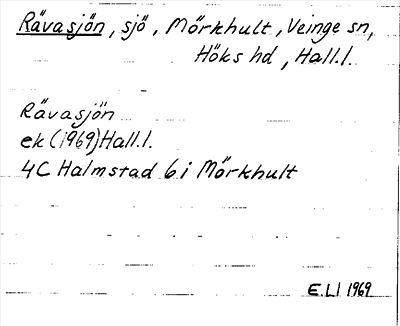 Rävasjön, sjö, Mörkhult, Veinge sn,
Höks hd, Hall.l.
Rävasjön
ek (1969) Hall.l.
4C Halmstad 6i Mörkhult
E.Ll 1969